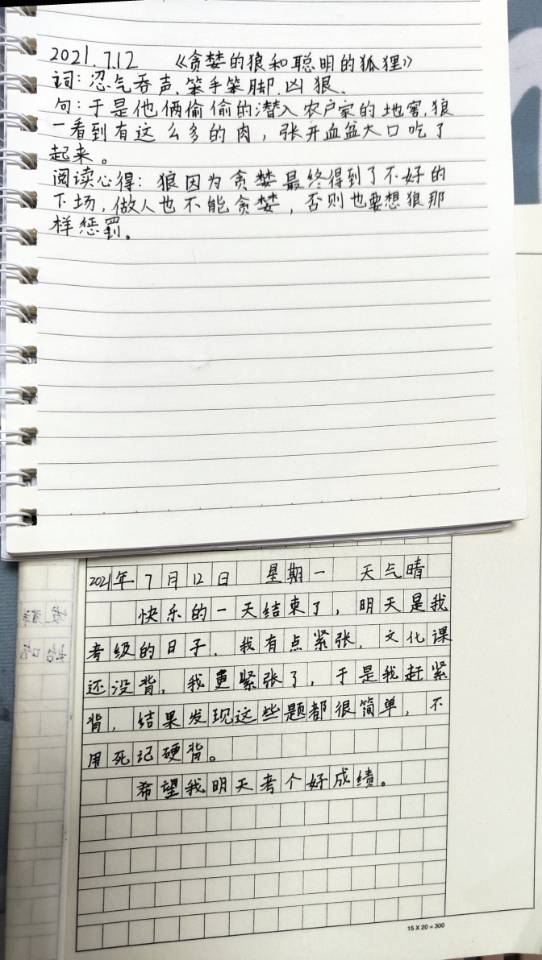 2021.7.12 《贪婪的狼和聪明的狐狸》
词：忍气吞声、笨手笨脚、凶狠、
句：于是他俩偷偷的潜入农户家的地窖，狼
一看到有这么多的肉，张开血盆大口吃了
起来。
阅读心得：狼因为贪婪最终得到了不好的
下场，做人也不能贪婪，否则也要想狼那
样惩罚。
2021年7月12日 星期一 天气晴
快乐的一天结束了，明天是我
考级的日子，我有点紧张，文化课
还没背，我更紧张了，于是我赶紧
背，结果发现这些题都很简单，不
用死记硬背。
希望我明天考个好成绩。
15×20=300